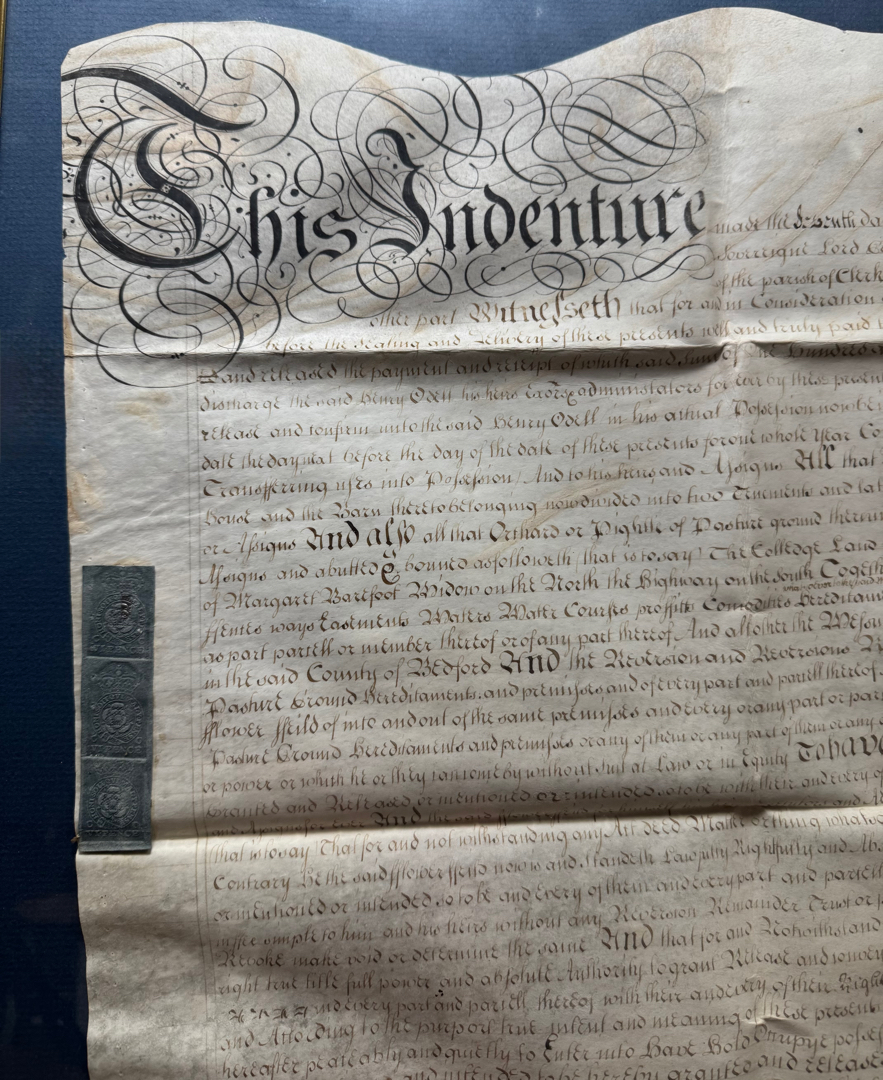 This Indenture made the Seventh da
Sovereigne Lord
of the parish of Clerk
other part Witnesseth that for and in Consideration
before the sealing and delivery of these presents well and truly paid
and released the payment and receipt of which said Summ of One Hundred
discharge the said Henry Odell his heirs Exors administators for ever by these presen
release and confirm unto the said Henry Odell in his actual Possession now bei
date the day next before the day of the date of these presents for one whole Year Co
Transferring uses into Possession And to his heirs and Assigns All that
house and the Barn thereto belonging now divided into two Tenements and lat
or Assigns And also all that Orchard or Pightle of Pasture ground therein
Assigns and abutted & bouned as followeth that is to say The Colledge Land
of Margaret Barefoot Widow on the North the Highway on the south Togeth
ffences ways Easements Waters Water Courses proffitts Comodities hereditam
as part parcell or member thereof or of any part thereof And all other the Messu
in the said County of Bedford And the Reversion and Reversions
Pasture Ground Hereditaments and premisses and of every part and parcell thereof
fflower ffeild of into and out of the same premisses and every or any part or par
Pasture Ground Hereditaments and premisses or any of them or any part of them or any
or power or which he or they can come by without Suit at Law or in Equity To have
Granted and Released or mentioned or intended so to be with their and every of
And the said
that is to say That for and notwithstanding any Act deed Matter or thing whatso
Contrary he the said fflower ffeild now is and Standeth Lawfully Rightfully and Ab
or mentioned or intended so to be and Every of them and every part and parcell
in ffee simple to him and his heirs without any Reversion Remainder Trust or
Revoke make void or determine the same And that for and Notwithstand
right true title full power and absolute Authority to grant Release and convey
and every part and parcell thereof with their and every of their Right
and According to the purport true intent and meaning of these presents
hereafter peaceably and quietly to Enter into Have Hold Occupye posses
and intended to be hereby granted and released